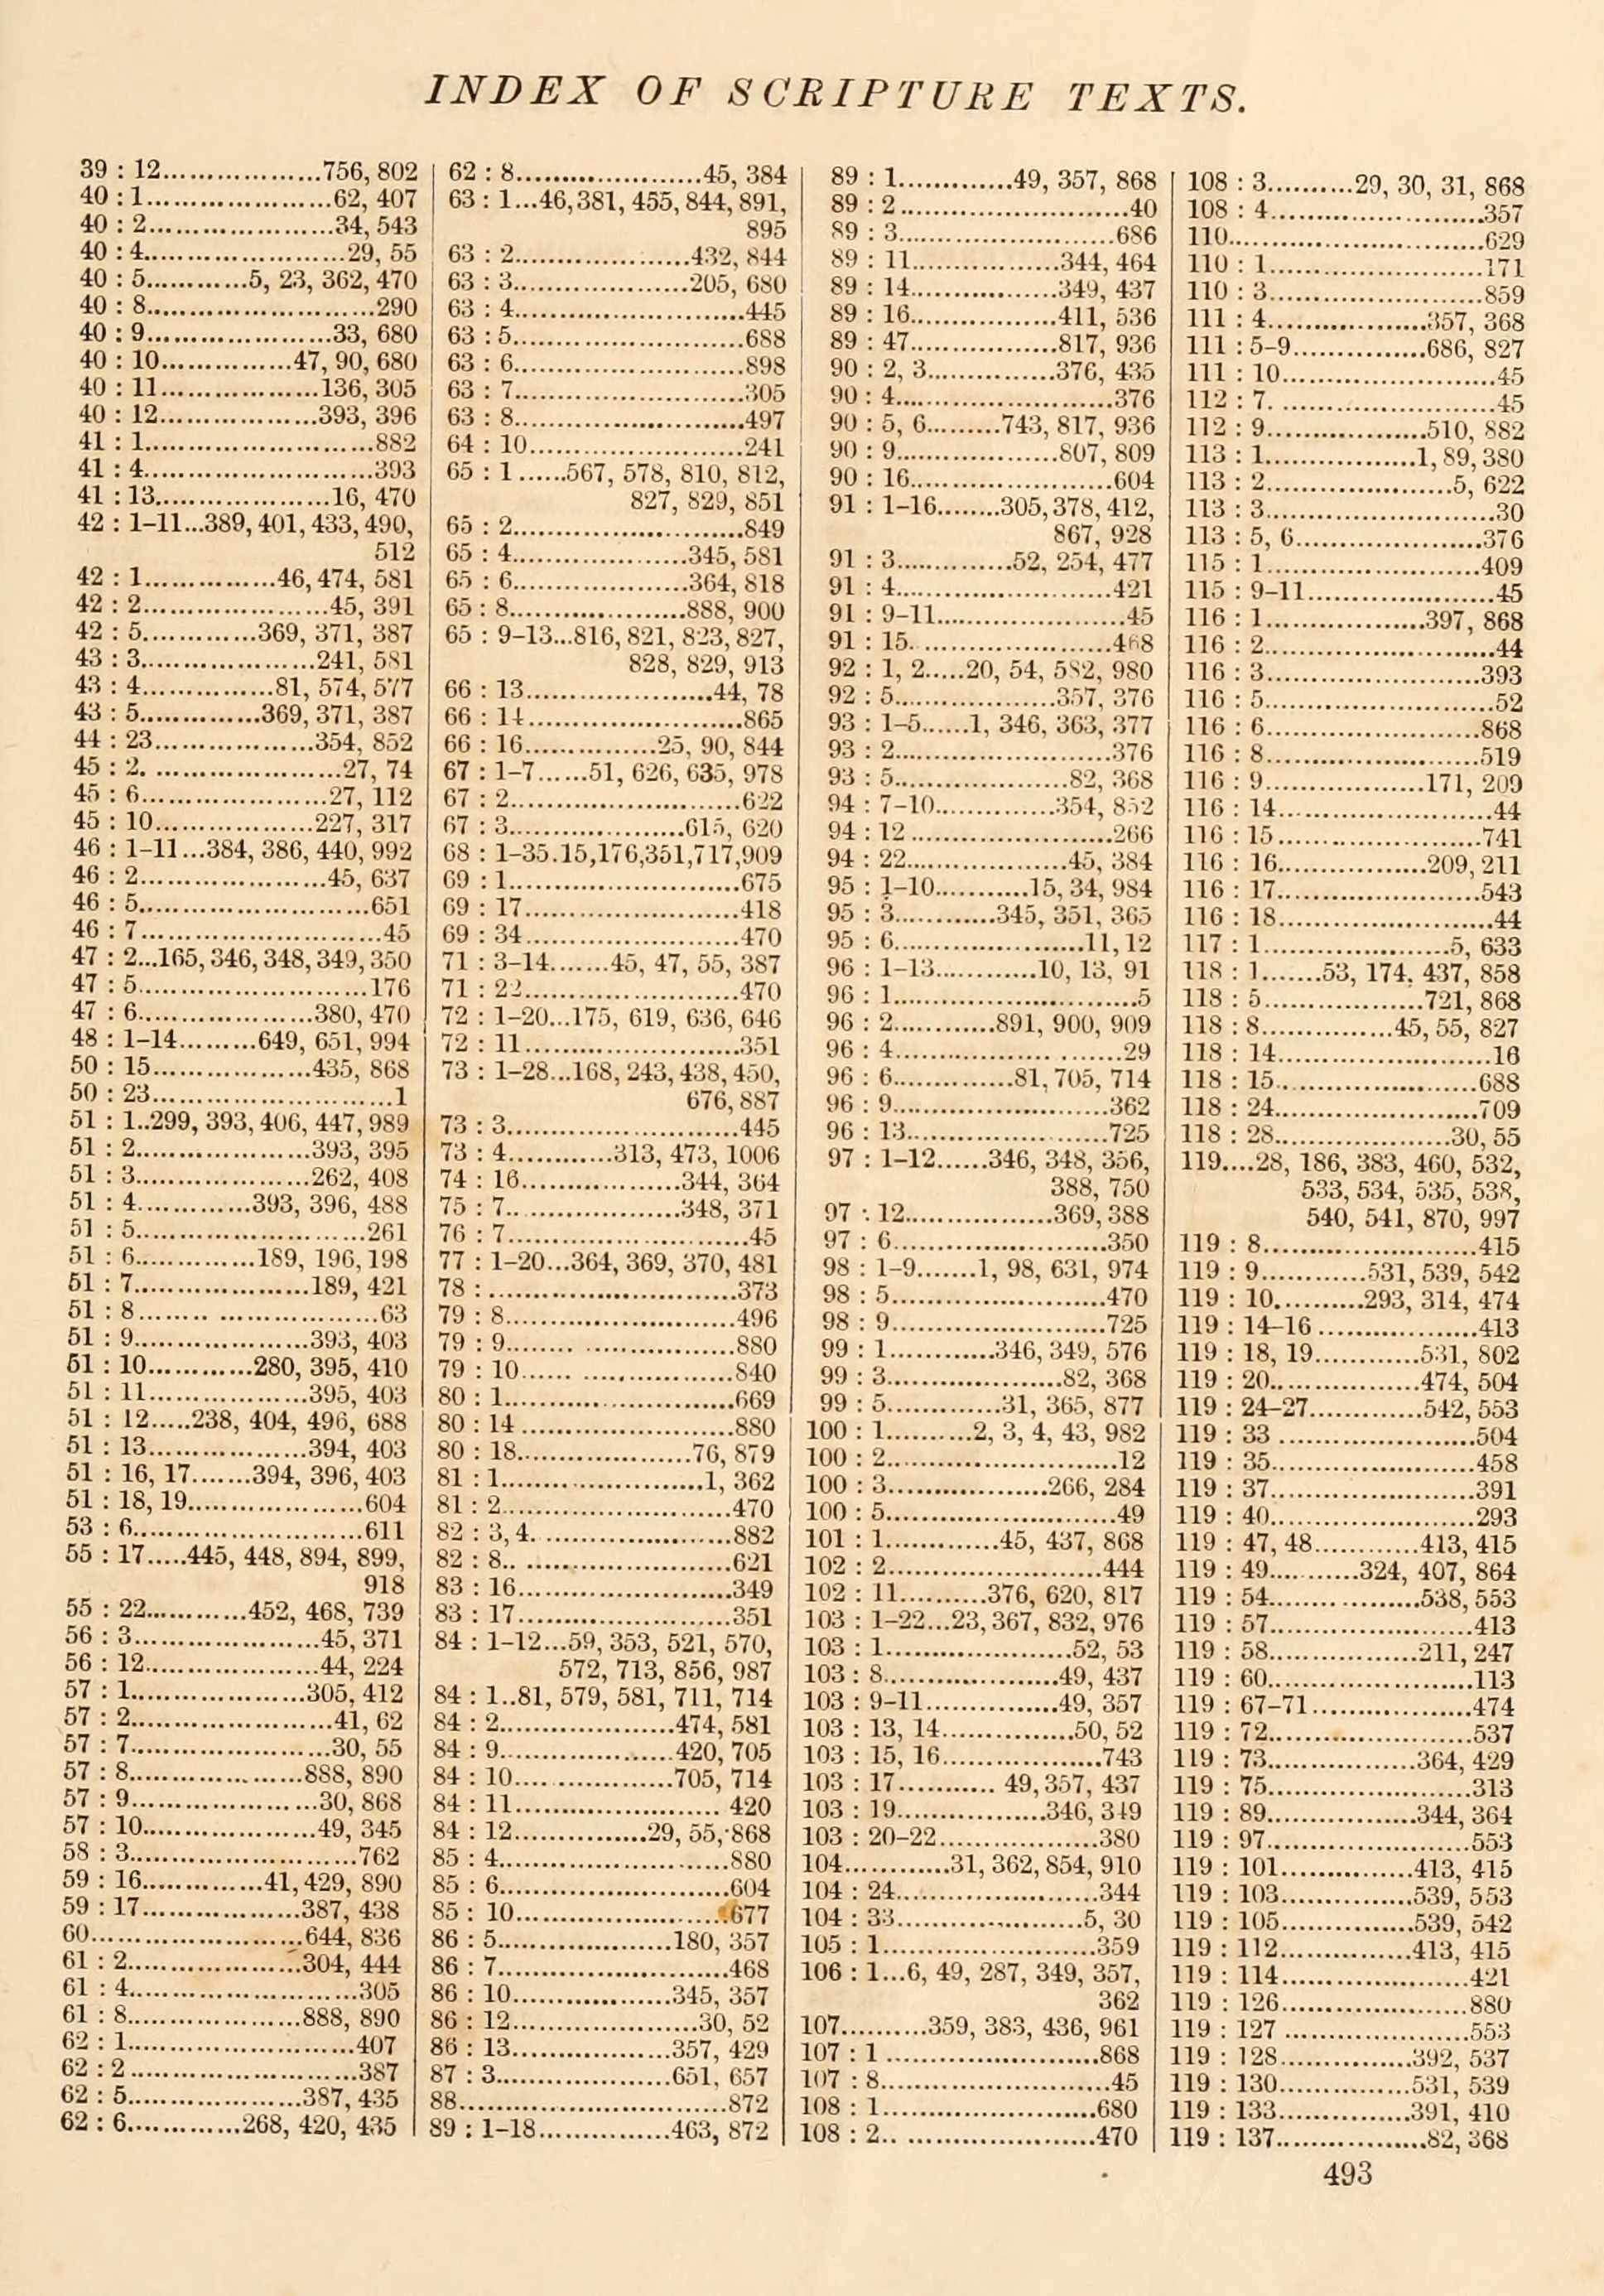 INDEX OF SCRIPTURE TEXTS.
39 : 12..................756, 802
40 : 1.....................62, 407
40 : 2.....................34, 543
40 : 4.......................29, 55
40 : 5............5, 23, 362, 470
40 : 8..........................290
40 : 9.....................33, 680
40 : 10...............47, 90, 680
40 : 11..................136, 305
40 : 12..................393, 396
41 : 1..........................882
41 : 4..........................393
41 : 13....................16, 470
42 : 1–11...389, 401, 433, 490,
512
42 : 1...............46, 474, 581
42 : 2.....................45, 391
42 : 5.............369, 371, 387
43 : 3....................241, 581
43 : 4...............81, 574, 577
43 : 5..............369, 371, 387
44 : 23..................354, 852
45 : 2. .....................27, 74
45 : 6.....................27, 112
45 : 10..................227, 317
46 : 1–11...384, 386, 440, 992
46 : 2.....................45, 637
46 : 5..........................651
46 : 7...........................45
47 : 2...165, 346, 348, 349, 350
47 : 5..........................176
47 : 6....................380, 470
48 : 1–14.........649, 651, 994
50 : 15..................435, 868
50 : 23...........................1
51 : 1..299, 393, 406, 447, 989
51 : 2....................393, 395
51 : 3....................262, 408
51 : 4.............393, 396, 488
51 : 5..........................261
51 : 6.............189, 196, 198
51 : 7....................189, 421
51 : 8........ ..................63
51 : 9....................393, 403
51 : 10............280, 395, 410
51 : 11..................395, 403
51 : 12.....238, 404, 496, 688
51 : 13..................394, 403
51 : 16, 17.......394, 396, 403
51 : 18, 19....................604
53 : 6..........................611
55 : 17.....445, 448, 894, 899,
918
55 : 22............452, 468, 739
56 : 3.....................45, 371
56 : 12...................44, 224
57 : 1....................305, 412
57 : 2.......................41, 62
57 : 7.......................30, 55
57 : 8....................888, 890
57 : 9.....................30, 868
57 : 10...................49, 345
58 : 3..........................762
59 : 16..............41, 429, 890
59 : 17..................387, 438
60...........................644, 836
61 : 2....................304, 444
61 : 4..........................305
61 : 8....................888, 890
62 : 1..........................407
62 : 2..........................387
62 : 5....................387, 435
62 : 6.............268, 420, 435
62 : 8.....................45, 384
63 : 1...46, 381, 455, 844, 891,
895
63 : 2....................432, 844
63 : 3....................205, 680
63 : 4..........................445
63 : 5..........................688
63 : 6..........................898
63 : 7..........................305
63 : 8..........................497
64 : 10........................241
65 : 1......567, 578, 810, 812,
827, 829, 851
65 : 2..........................849
65 : 4....................345, 581
65 : 6....................364, 818
65 : 8....................888, 900
65 : 9–13...816, 821, 823, 827,
828, 829, 913
66 : 13.....................44, 78
66 : 14........................865
66 : 16...............25, 90, 844
67 : 1–7......51, 626, 635, 978
67 : 2..........................622
67 : 3....................615, 620
68 : 1–35.15,176,351,717,909
69 : 1..........................675
69 : 17........................418
69 : 34........................470
71 : 3–14.......45, 47, 55, 387
71 : 22........................470
72 : 1–20...175, 619, 636, 646
72 : 11........................351
73 : 1–28...168, 243, 438, 450,
676, 887
73 : 3..........................445
73 : 4............313, 473, 1006
74 : 16..................344, 364
75 : 7.. ..................348, 371
76 : 7...........................45
77 : 1–20...364, 369, 370, 481
78 : ............................373
79 : 8..........................496
79 : 9....... .................880
79 : 10...... ................840
80 : 1..........................669
80 : 14........................880
80 : 18....................76, 879
81 : 1.......................1, 362
81 : 2..........................470
82 : 3, 4. ......................882
82 : 8.. .......................621
83 : 16........................349
83 : 17........................351
84 : 1–12...59, 353, 521, 570,
572, 713, 856, 987
84 : 1..81, 579, 581, 711, 714
84 : 2....................474, 581
84 : 9....................420, 705
84 : 10..................705, 714
84 : 11....................... 420
84 : 12...............29, 55, 868
85 : 4..........................880
85 : 6..........................604
85 : 10........................677
86 : 5....................180, 357
86 : 7..........................468
86 : 10..................345, 357
86 : 12.....................30, 52
86 : 13..................357, 429
87 : 3....................651, 657
88..............................872
89 : 1–18...............463, 872
89 : 1.............49, 357, 868
89 : 2..........................40
89 : 3........................686
89 : 11.................344, 464
89 : 14.................349, 437
89 : 16.................411, 536
89 : 47.................817, 936
90 : 2, 3...............376, 435
90 : 4.........................376
90 : 5, 6.........743, 817, 936
90 : 9...................807, 809
90 : 16.......................604
91 : 1–16........305, 378, 412,
867, 928
91 : 3.............52, 254, 477
91 : 4.........................421
91 : 9–11......................45
91 : 15. ......................468
92 : 1, 2.....20, 54, 582, 980
92 : 5...................357, 376
93 : 1–5......1, 346, 363, 377
93 : 2.........................376
93 : 5....................82, 368
94 : 7–10..............354, 852
94 : 12.......................266
94 : 22..................45, 384
95 : 1–10...........15, 34, 984
95 : 3............345, 351, 365
95 : 6......................11, 12
96 : 1–13............10, 13, 91
96 : 1............................5
96 : 2............891, 900, 909
96 : 4.................. .......29
96 : 6..............81, 705, 714
96 : 9.........................362
96 : 13.......................725
97 : 1–12......346, 348, 356,
388, 750
97 : 12.................369, 388
97 : 6.........................350
98 : 1–9.......1, 98, 631, 974
98 : 5.........................470
98 : 9.........................725
99 : 1............346, 349, 576
99 : 3....................82, 368
99 : 5.............31, 365, 877
100 : 1..........2, 3, 4, 43, 982
100 : 2..........................12
100 : 3..................266, 284
100 : 5..........................49
101 : 1.............45, 437, 868
102 : 2.........................444
102 : 11..........376, 620, 817
103 : 1–22...23, 367, 832, 976
103 : 1.....................52, 53
103 : 8....................49, 437
103 : 9–11...............49, 357
103 : 13, 14...............50, 52
103 : 15, 16...................743
103 : 17........... 49, 357, 437
103 : 19.................346, 349
103 : 20–22..................380
104............31, 362, 854, 910
104 : 24.......................344
104 : 33.....................5, 30
105 : 1.........................359
106 : 1...6, 49, 287, 349, 357,
362
107..........359, 383, 436, 961
107 : 1.........................868
107 : 8..........................45
108 : 1.........................680
108 : 2.. ......................470
108 : 3..........29, 30, 31, 868
108 : 4.........................357
110.............................629
110 : 1.........................171
110 : 3.........................859
111 : 4...................357, 368
111 : 5–9...............686, 827
111 : 10........................45
112 : 7. ........................45
112 : 9..................510, 882
113 : 1.................1, 89, 380
113 : 2.....................5, 622
113 : 3..........................30
113 : 5, 6.....................376
115 : 1.........................409
115 : 9–11.....................45
116 : 1..................397, 868
116 : 2..........................44
116 : 3.........................393
116 : 5..........................52
116 : 6.........................868
116 : 8.........................519
116 : 9..................171, 209
116 : 14........................44
116 : 15.......................741
116 : 16.................209, 211
116 : 17.......................543
116 : 18........................44
117 : 1.....................5, 633
118 : 1.......53, 174, 437, 858
118 : 5..................721, 868
118 : 8...............45, 55, 827
118 : 14........................16
118 : 15.......................688
118 : 24.......................709
118 : 28....................30, 55
119....28, 186, 383, 460, 532,
533, 534, 535, 538,
540, 541, 870, 997
119 : 8.........................415
119 : 9............531, 539, 542
119 : 10..........293, 314, 474
119 : 14–16..................413
119 : 18, 19............531, 802
119 : 20.................474, 504
119 : 24–27.............542, 553
119 : 33.......................504
119 : 35.......................458
119 : 37.......................391
119 : 40.......................293
119 : 47, 48............413, 415
119 : 49..........324, 407, 864
119 : 54.................538, 553
119 : 57.......................413
119 : 58.................211, 247
119 : 60.......................113
119 : 67–71..................474
119 : 72.......................537
119 : 73.................364, 429
119 : 75.......................313
119 : 89.................344, 364
119 : 97.......................553
119 : 101...............413, 415
119 : 103...............539, 553
119 : 105...............539, 542
119 : 112...............413, 415
119 : 114.....................421
119 : 126.....................880
119 : 127.....................553
119 : 128...............392, 537
119 : 130...............531, 539
119 : 133...............391, 410
119 : 137.................82, 368
493